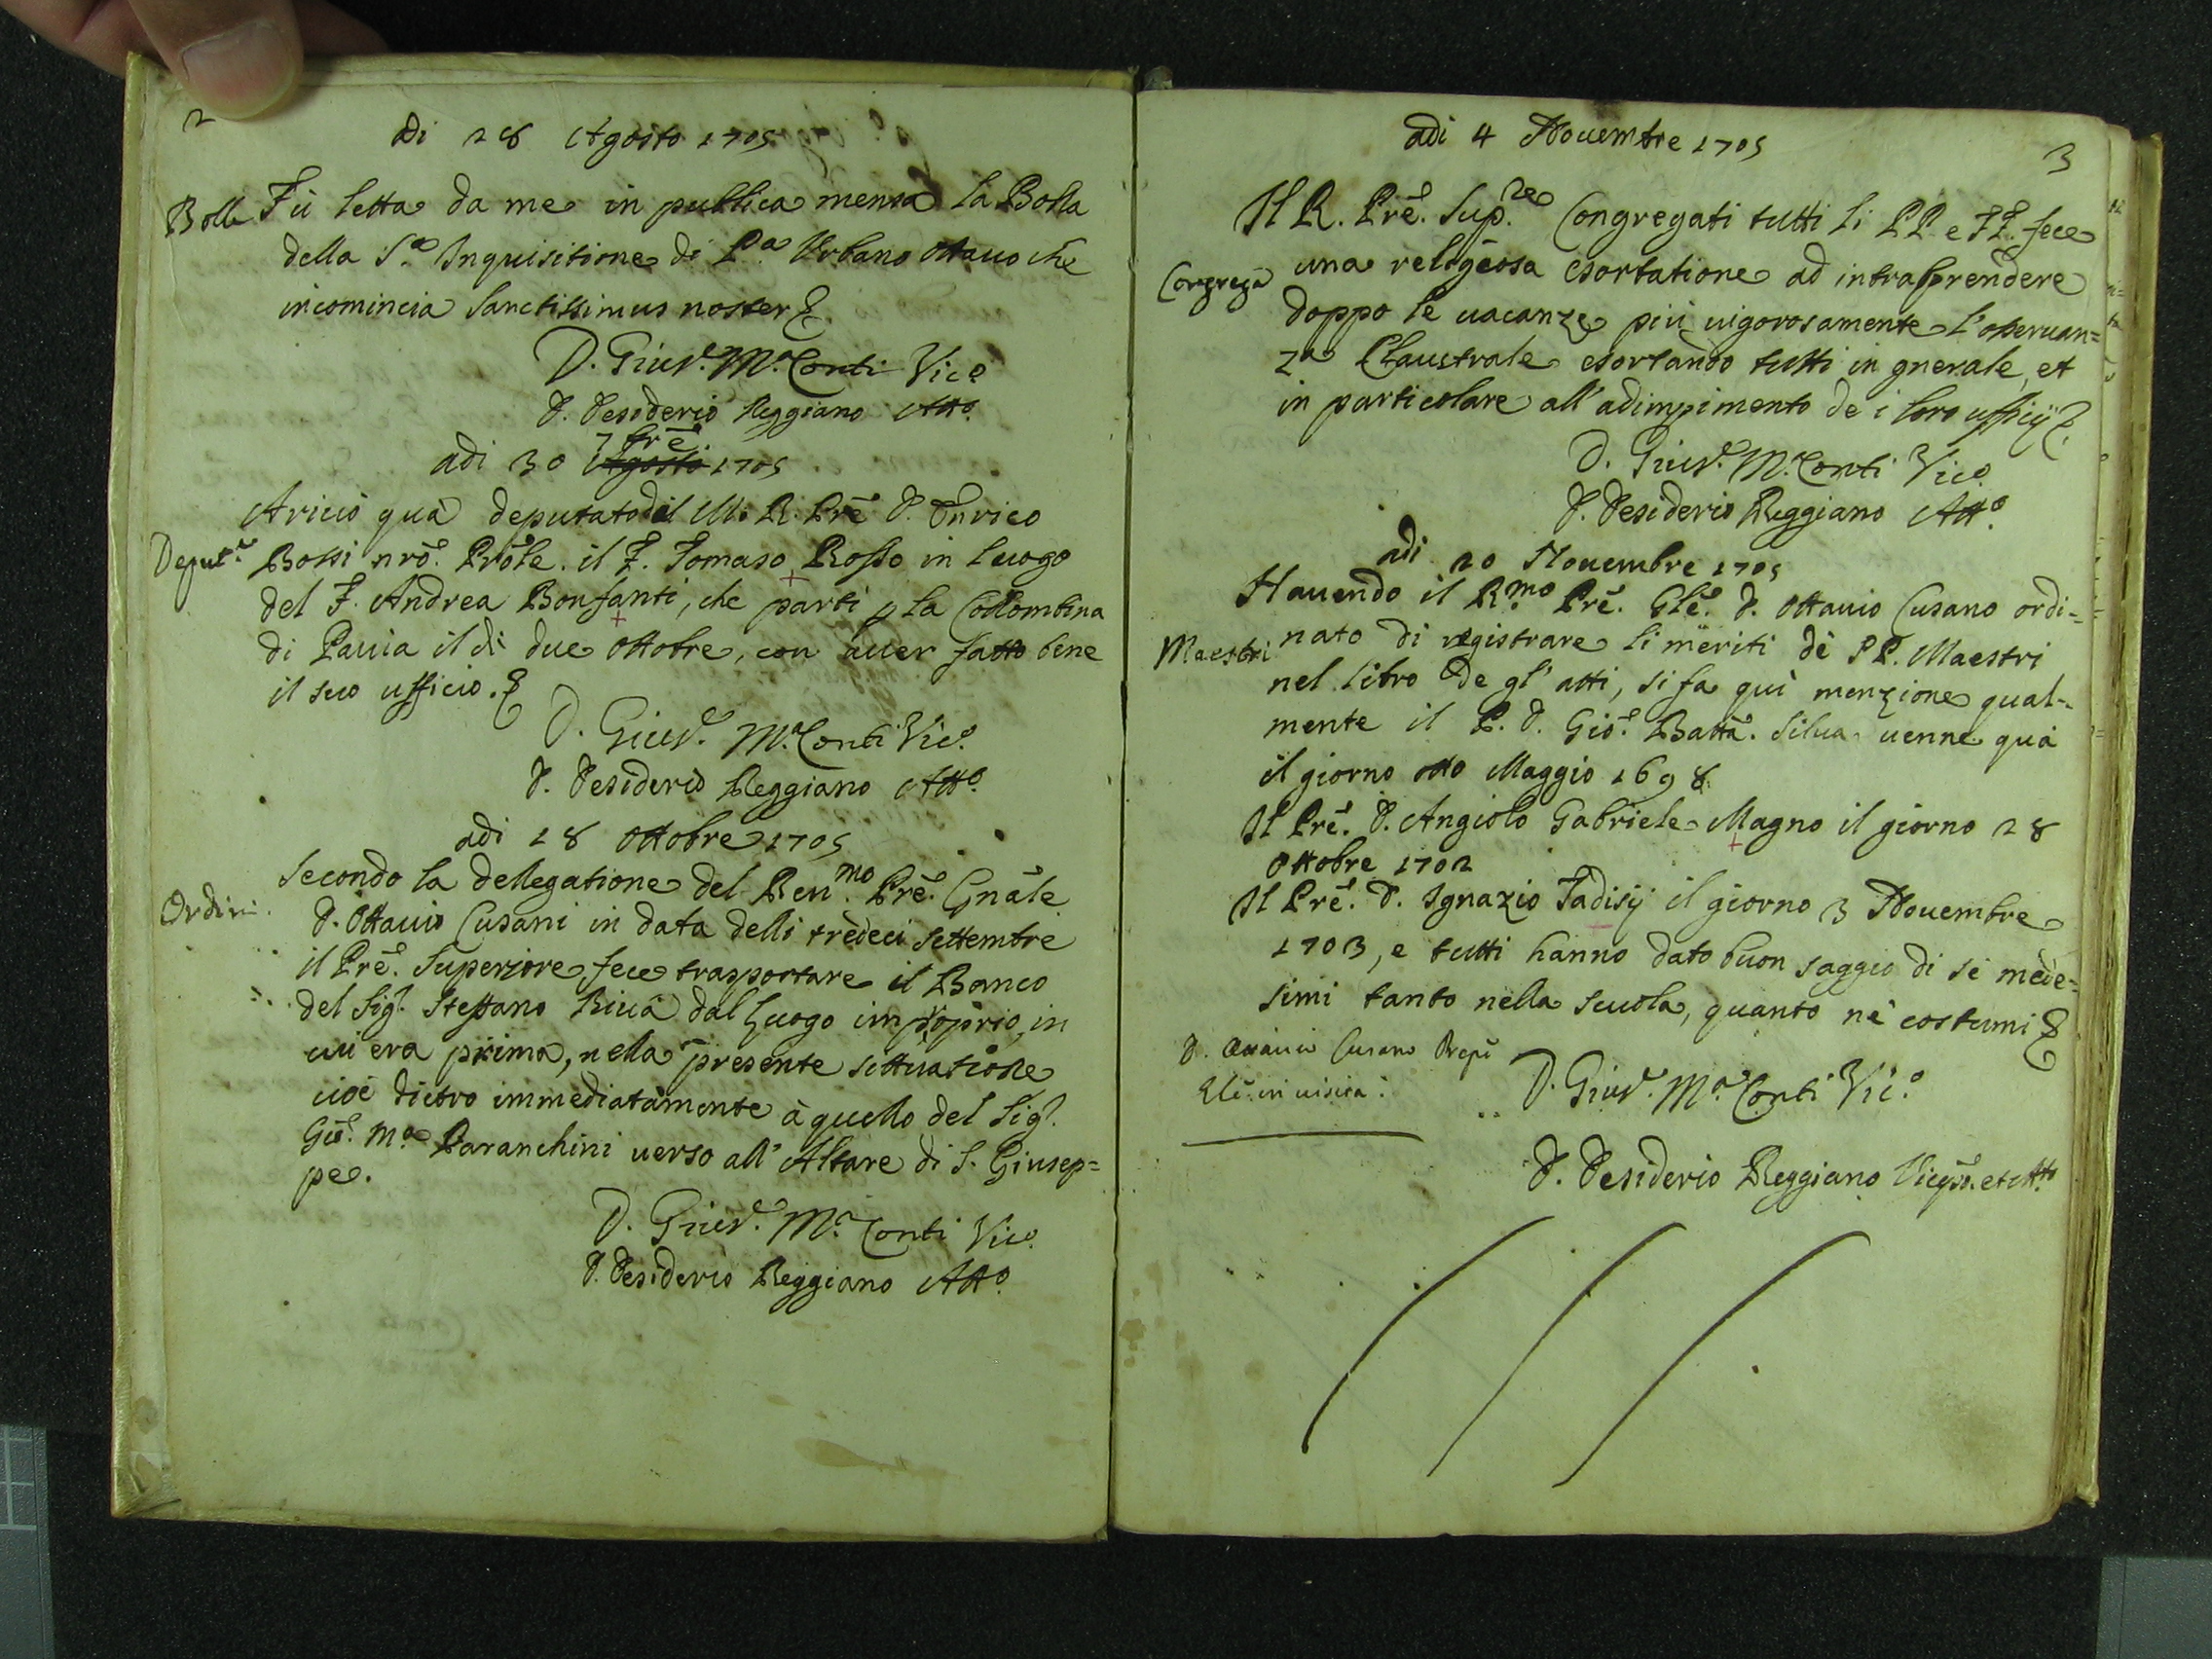 2
Di 28 Agosto 1705
Bolle Fù letta da me in publica mensa la Bolla
della S.ª Inquisitione di P.ª Urbano ottavo che
incomincia Sanctissimus noster &.
D. Giusᵉ. M.ª Conti Vicº
D. Desiderio Reggiano Attº.
7brē
adi 30 Agosto 1705
Arivò quà deputato dal M. R. Prē D. Enrico
Deput.ᵉ Bossi nrō. Prōle. il F. Tomaso Rosso in luogo
del F. Andrea Bonfanti, che partì p la Collombina
di Pavia il dì due ottobre, con aver fatto bene
il suo ufficio. &
D. Giusᵉ. M.ª Conti Vicº.
D. Desiderio Reggiano Attº.
adi 18 ottobre 1705
Secondo la dellegatione del Reuᵐᵒ. Prē. Gnāle
Ordini. D. Ottavio Cusani in data delli tredeci Settembre
il Prē. Superiore fece trasportare il Banco
del Sigʳ. Steffano Riva dal luogo improprio, in
cui era prima, nella presente sittuatione
cioè dietro immediatamente à quello del Sigʳ.
Gioº. Mª. Paranchini verso all' Altare di S. Giusep=
pe.
D. Giusᵉ. M.ª Conti Vicº.
D. Desiderio Reggiano Attº.
3
adi 4 Novembre 1705
Il R. Prē. Sup.ʳᵉ Congregati tutti li PP. e FF. fece
Congregā una religiosa esortatione ad intraprendere
doppo le vacanze più vigorosamente l'osservan=
za Claustrale esortando tutti in gnerale, et
in particolare all' adimpimento de i loro ufficij &.
D. Giusᵉ. M.ª Conti Vicº.
D. Desiderio Reggiano Attº.
adi 20 Novembre 1705
Havendo il R.ᵐᵒ Prē. Glē. D. Ottavio Cusano ordi=
Maestri nato di registrare li meriti dè PP. Maestri
nel libro de gl' atti, si fa quì menzione qual-
mente il P. D. Gioº. Battā. Silva venne quà
il giorno otto Maggio 1698
Il Prē. D. Angiolo Gabriele Magno il giorno 28
Ottobre 1702
Il Prē. D. Ignazio Tadisij il giorno 3 Novembre
1703, e tutti hanno dato buon saggio di sè mede=
simi tanto nella scuola, quanto nè costumi &
D. Ottavio Cusano Prepō
Glē. in visita.
D. Giusᵉ. M.ª Conti Vicº.
D. Desiderio Reggiano et Attº